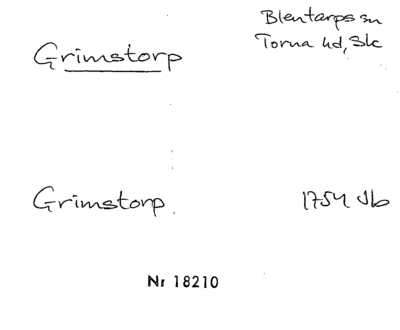 Grimstorp
Blentarps sn
Torna hd, Skc
Grimstorp.
1754 Jb
Nr 18210